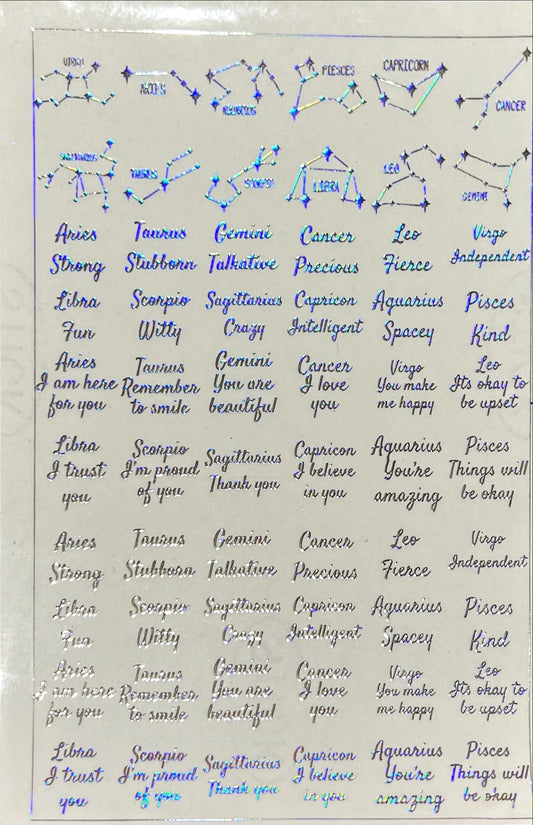 VIRGO PIESCES CAPRICORN CANCER
TAURUS SCORPIO LIBRA LEO GEMINI
Aries Taurus Gemini Cancer Leo Virgo
Strong Stubborn Talkative Precious Fierce Independent
Libra Scorpio Sagittarius Capricon Aquarius Pisces
Fun Witty Crazy Intelligent Spacey Kind
Aries Taurus Gemini Cancer Virgo Leo
I am here Remember You are I love You make Its okay to
for you to smile beautiful you me happy be upset
Libra Scorpio Sagittarius Capricon Aquarius Pisces
I trust I'm proud Thank you I believe You're Things will
you of you in you amazing be okay
Aries Taurus Gemini Cancer Leo Virgo
Strong Stubborn Talkative Precious Fierce Independent
Libra Scorpio Sagittarius Capricon Aquarius Pisces
Fun Witty Crazy Intelligent Spacey Kind
Aries Taurus Gemini Cancer Virgo Leo
I am here Remember You are I love You make Its okay to
for you to smile beautiful you me happy be upset
Libra Scorpio Sagittarius Capricon Aquarius Pisces
I trust I'm proud Thank you I believe You're Things will
you of you in you amazing be okay